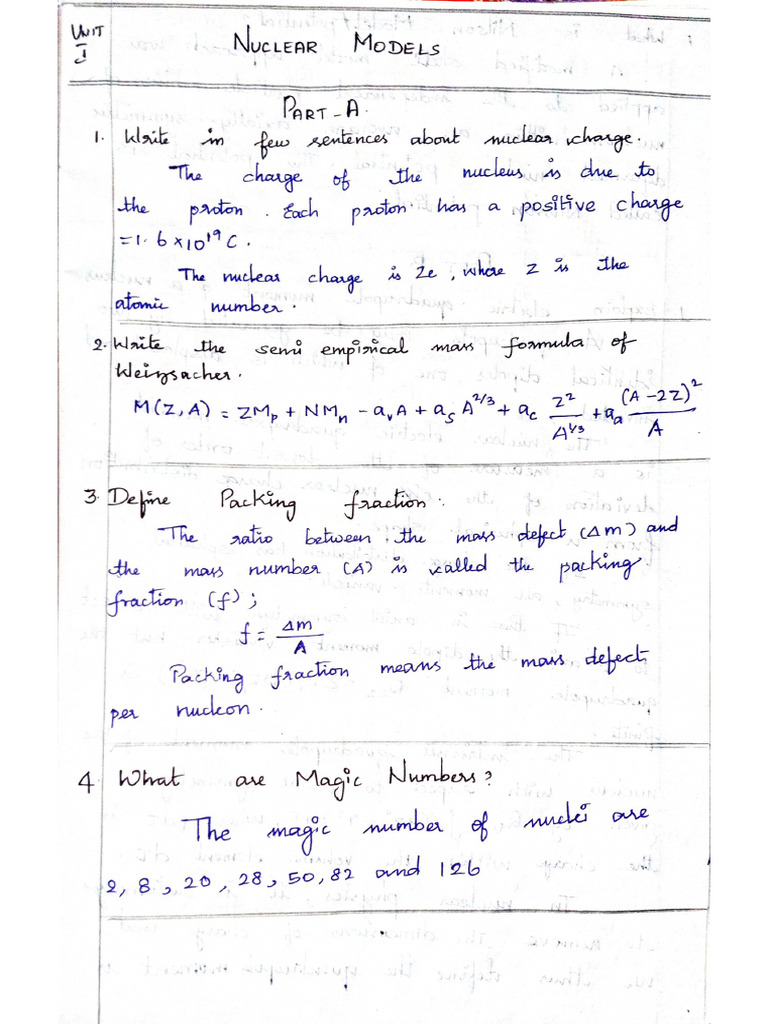 UNIT
I
NUCLEAR MODELS
PART-A.
1. Write in few sentences about nuclear charge.
The charge of the nucleus is due to
the proton. Each proton has a positive charge
=1.6×10¹⁹C.
The nuclear charge is Ze, where Z is the
atomic number.
2. Write the semi empirical mass formula of
Weizsacher.
M(Z,A) = ZMp + NMn - avA + as A^2/3 + ac Z²/A^1/3 + aa (A-2Z)²/A
3. Define Packing fraction.
The ratio between the mass defect (Δm) and
the mass number (A) is called the packing
fraction (f);
f = Δm/A
Packing fraction means the mass defect
per nucleon.
4. What are Magic Numbers?
The magic number of nuclei are
2, 8, 20, 28, 50, 82 and 126